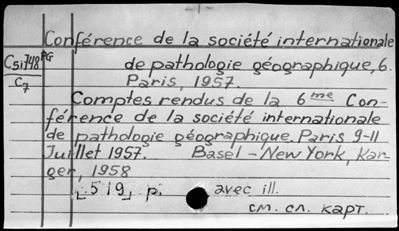 -1-
Conférence de la société internationale
Csi748 PG
C7
de pathologie géographique, 6.
Paris, 1957.
Comptes rendus de la 6me Con-
férence de la société internationale
de pathologie géographique. Paris 9-11
Juillet 1957. Basel - New York, Kar-
ger, 1958
519 p. avec ill.
см. сл. карт.